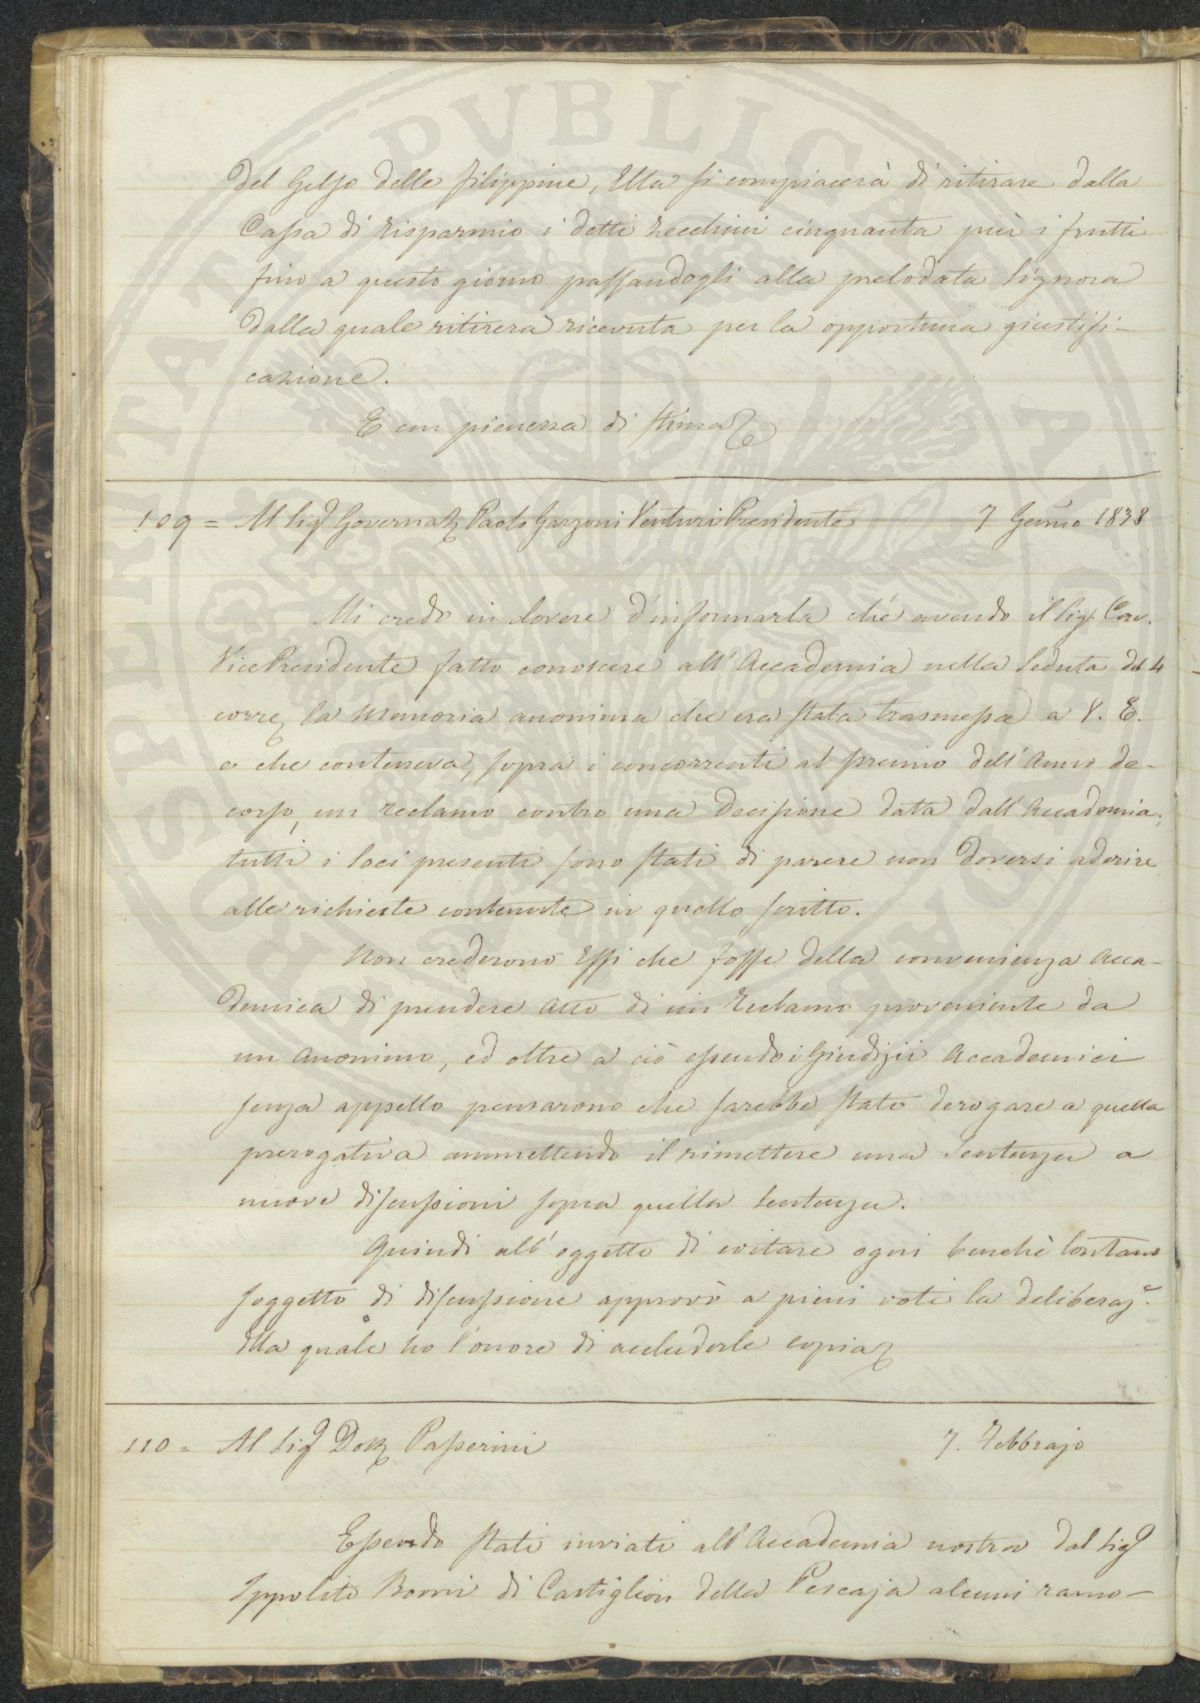 del Gelso delle Filippine, Ella si compiacerà di ritirare dalla
Cassa di Risparmio i detti Zecchini cinquanta più i frutti
fino a questo giorno passandogli alla prelodata Signora
dalla quale ritirerà ricevuta per la opportuna giustifi-
cazione.
E con pienezza di stima
109 = Al Sig. Governat. Paolo Garzoni Venturi Presidente 7 Genno 1838
Mi credo in dovere d'informarla che avendo il Sig. Cav.
Vice Presidente fatto conoscere all'Accademia nella Seduta del 4
corre. la Memoria anonima che era stata trasmessa a V. E.
e che conteneva, sopra i concorrenti al premio dell'Anno de-
corso, un reclamo contro una Decisione data dall'Accademia;
tutti i Soci presenti sono stati di parere non doversi aderire
alle richieste contenute in quello scritto.
Non crederono Essi che fosse della convenienza Acca-
demica di prendere Atto di un Reclamo proveniente da
un Anonimo, ed oltre a ciò essendo i Giudizii Accademici
senza appello pensarono che sarebbe stato derogare a quella
prerogativa ammettendo il rimettere una Sentenza a
nuove discussioni sopra quella Sentenza.
Quindi all'oggetto di evitare ogni benchè lontano
soggetto di discussione approvò a pieni voti la deliberaz.e
della quale ho l'onore di accluderle copia
110 = Al Sig. Dott. Passerini 7. Febbrajo
Essendo stati inviati all'Accademia nostra dal Sig.
Ippolito Bonni di Castiglion della Pescaja alcuni ramo-
PROSPERITATI PUBLICAE